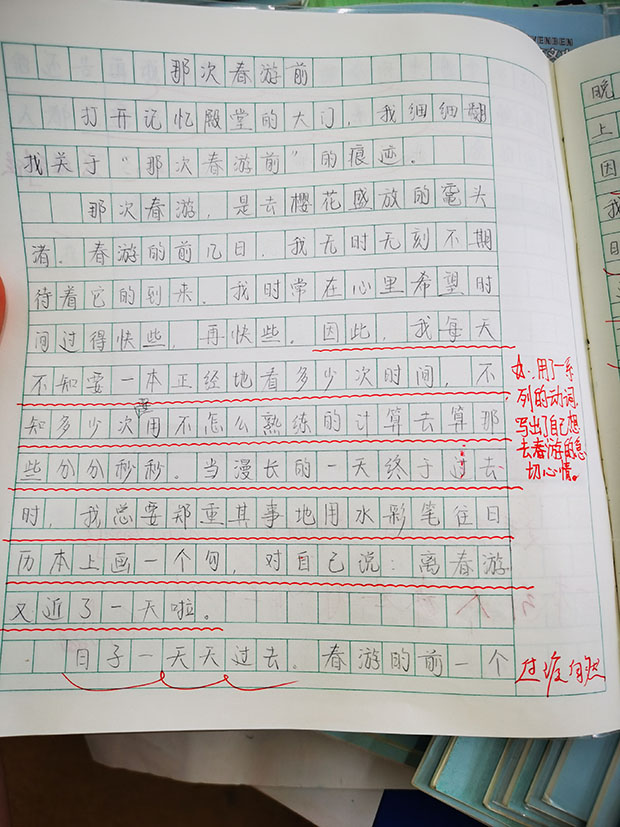 那次春游前
打开记忆殿堂的大门，我细细翻
找关于“那次春游前”的痕迹。
那次春游，是去樱花盛放的鼋头
渚。春游的前几日，我无时无刻不期
待着它的到来。我时常在心里希望时
间过得快些，再快些。因此，我每天
不知要一本正经地看多少次时间，不
知多少次用不怎么熟练的计算去算那
些分分秒秒。当漫长的一天终于过去
时，我总要郑重其事地用水彩笔往日
历本上画一个勾，对自己说：离春游
又近了一天啦。
日子一天天过去。春游的前一个
用了一系
列的动词，
写出了自己想
去春游的急
切心情。
过渡自然
晚
上
因
我
日